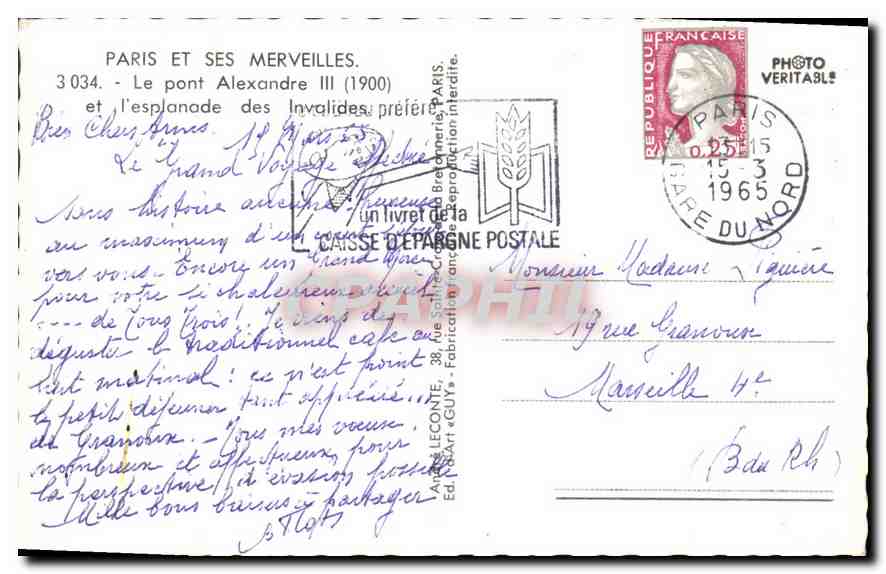 PARIS ET SES MERVEILLES.
3 034. - Le pont Alexandre III (1900)
et l'esplanade des Invalides.
préféré
Bien Chers Amis. 15 Mars 65
Le Grand Voyage
Sans histoire aucune.
au maximum d'un court
vers vous. Encore un Grand Merci
pour votre si chaleureux accueil
---- de Tous Trois! Je viens de
déguster le traditionnel café au
lait matinal! ce n'est point
le petit déjeuner tant apprécié...
de Granoux. - Tous mes voeux
nombreux et affectueux pour
la perspective d'évasion possible
Mille bons baisers à partager
un livret de la
CAISSE D'EPARGNE POSTALE
André LECONTE, 38, rue Sainte-Croix-de-la-Bretonnerie, PARIS.
Ed. d'Art «GUY» - Fabrication Française - Reproduction interdite.
REPUBLIQUE FRANÇAISE
0,25
PHOTO
VERITABLE
PARIS
15-3
1965
GARE DU NORD
Monsieur Madame
19 rue Granoux
Marseille 4e
(B du Rh)
CPAPHIL